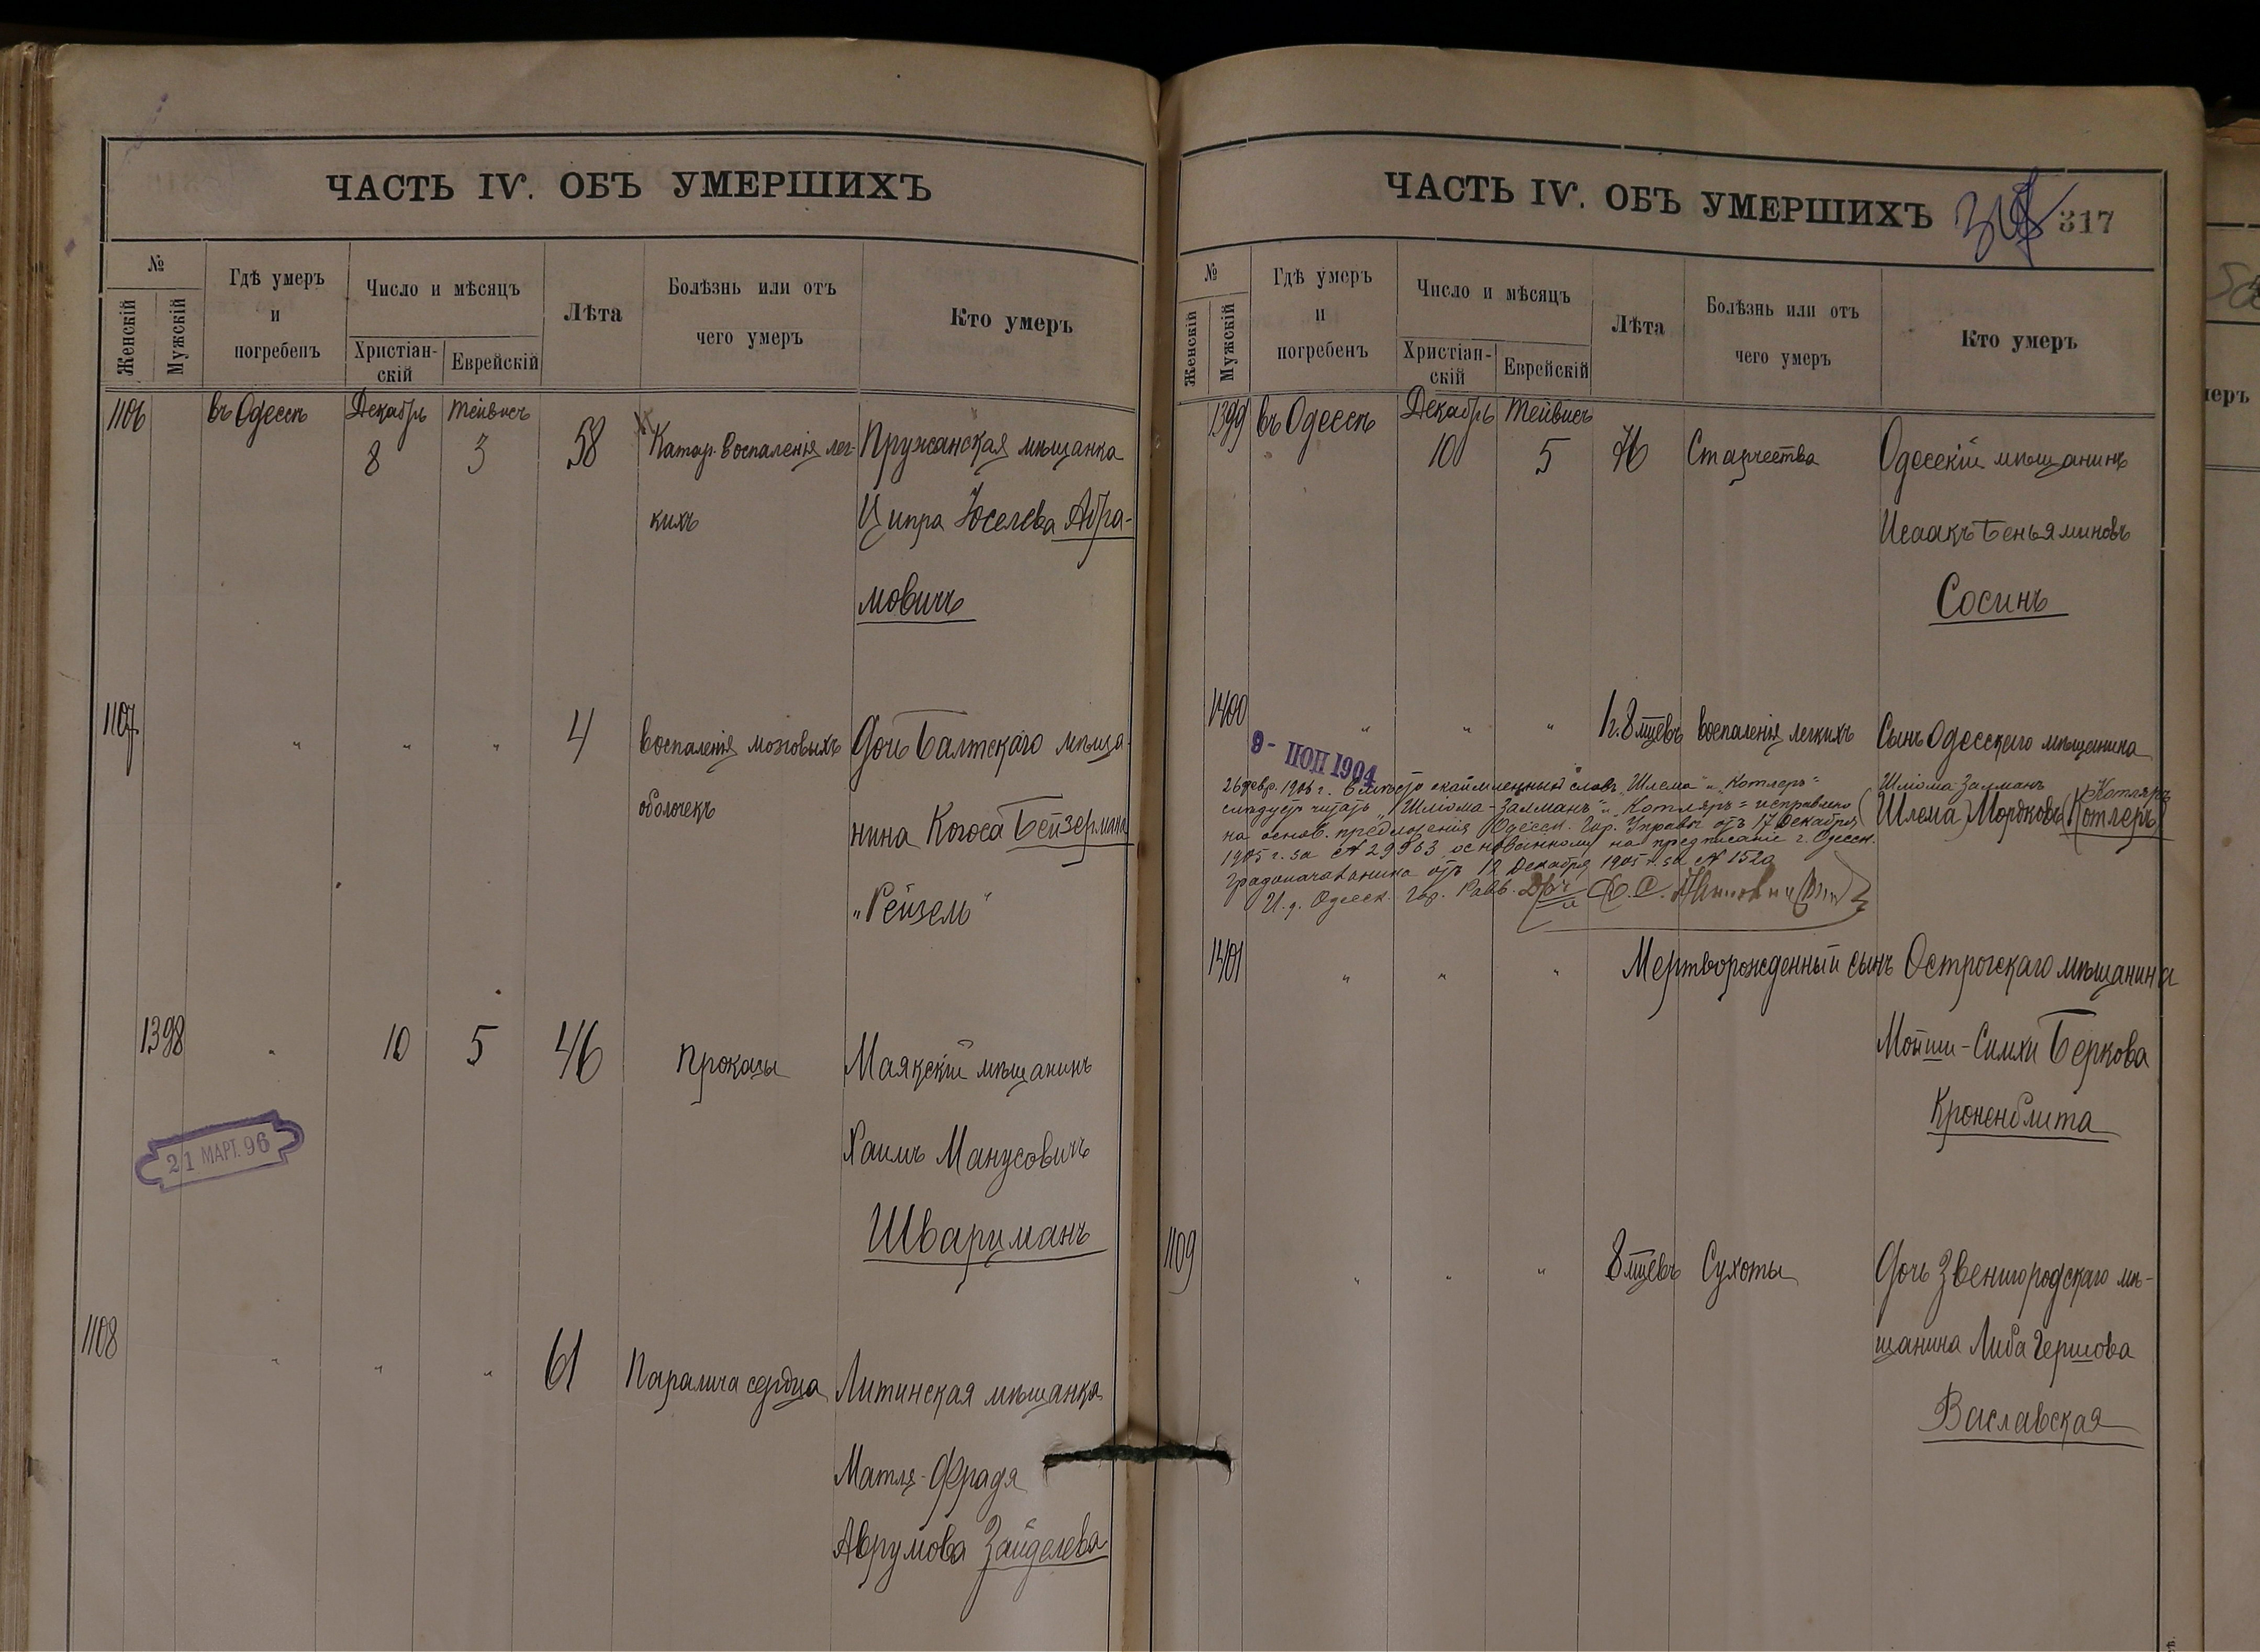 ЧАСТЬ IV. ОБЪ УМЕРШИХЪ
№
Женскій
Мужскій
Гдѣ умеръ
и
погребенъ
Число и мѣсяцъ
Христіан-
скій
Еврейскій
Лѣта
Болѣзнь или отъ
чего умеръ
Кто умеръ
1106 въ Одессѣ Декабрь Тейвисъ
8 3 58 Катар. воспаленія лег- Пружанская мѣщанка
кихъ Ципра Іоселева Абра-
мовичъ
1107 " " " 4 воспаленія мозговыхъ Дочь Балтскаго мѣща-
оболочекъ нина Когоса Бейзермана
"Рейзель"
1398 " 10 5 46 Проказы Маякскій мѣщанинъ
Хаимъ Манусовичъ
21 МАРТ. 96
Шварцманъ
1108 " " " 61 Паралича сердца Литинская мѣщанка
Матля-Фрадя
Аврумова Зайделева
ЧАСТЬ IV. ОБЪ УМЕРШИХЪ
317
№
Женскій
Мужскій
Гдѣ умеръ
и
погребенъ
Число и мѣсяцъ
Христіан-
скій
Еврейскій
Лѣта
Болѣзнь или отъ
чего умеръ
Кто умеръ
1399 въ Одессѣ Декабрь Тейвисъ
10 5 76 Старчества Одесскій мѣщанинъ
Исаакъ Беньяминовъ
Сосинъ
1400 " " " 1 г. 8 мцевъ воспаленія легкихъ Сынъ Одесскаго мѣщанина
Шліома Залманъ Котляръ
(Шлема) Мордковъ (Котлеръ)
9 - 1904
26 февр. 1906 г. Вмѣсто окаймленныхъ словъ "Шлема" и "Котлеръ"
слѣдуетъ читать "Шліома-Залманъ" и "Котляръ" исправлено
на основ. предложенія Одесск. Гор. Управы отъ 17 Декабря
1905 г. за № 29563 основанному на предписаніе г. Одесск.
Градоначальника отъ 12 Декабря 1905 г. за № 1520
И. д. Одесск. Гор. Равв.
1401 " " " Мертворожденный сынъ Острогскаго мѣщанина
Мойши-Симхи Беркова
Кроненблита
1109 " " " 8 мцевъ Сухоты Дочь Звенигородскаго мѣ-
щанина Либа Гершова
Ваславская